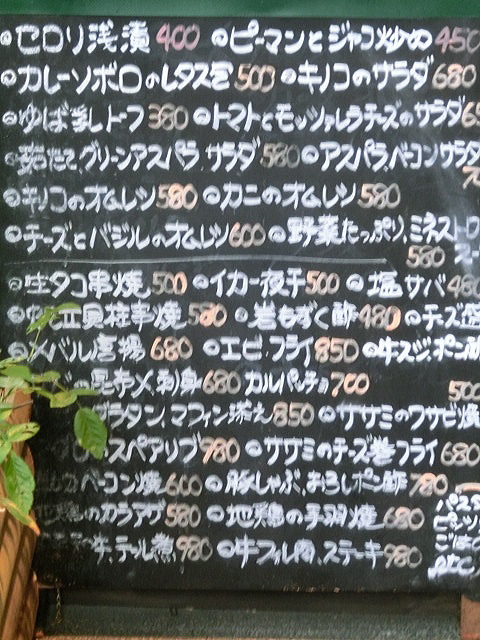 セロリ浅漬 400 ピーマンとジャコ炒め 450
カレーソボロのレタス包 500 キノコのサラダ 680
ゆば 400 トマトとモッツァレラチーズのサラダ
グリーンアスパラ サラダ 580 アスパラ、ベーコンサラダ
キノコのオムレツ 580 カニのオムレツ 580
チーズとバジルのオムレツ 600 野菜たっぷり、ミネストロ
580
生タコ串焼 500 イカ一夜干 500 塩サバ 480
貝柱串焼 580 岩もずく酢 480 チーズ
メバル唐揚 680 エビ、フライ 850 牛スジ、ポン酢
500
昆布〆刺身 680 カルパッチョ 700
グラタン、マフィン添え 850 ササミのワサビ焼
スペアリブ 780 ササミのチーズ巻フライ 680
ベーコン焼 600 豚しゃぶ、おろしポン酢 780
地鶏のカラアゲ 580 地鶏の手羽焼 680
牛、テール煮 980 牛フィレ肉、ステーキ 980
パスタ
ピッツ
ごはん